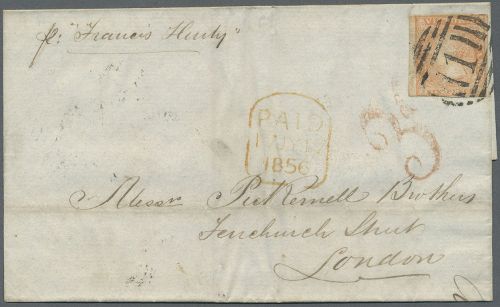 p: "Francis Henty"
1
PAID
JY
1856
3
Messrs Pickernell Brothers
Fenchurch Street
London